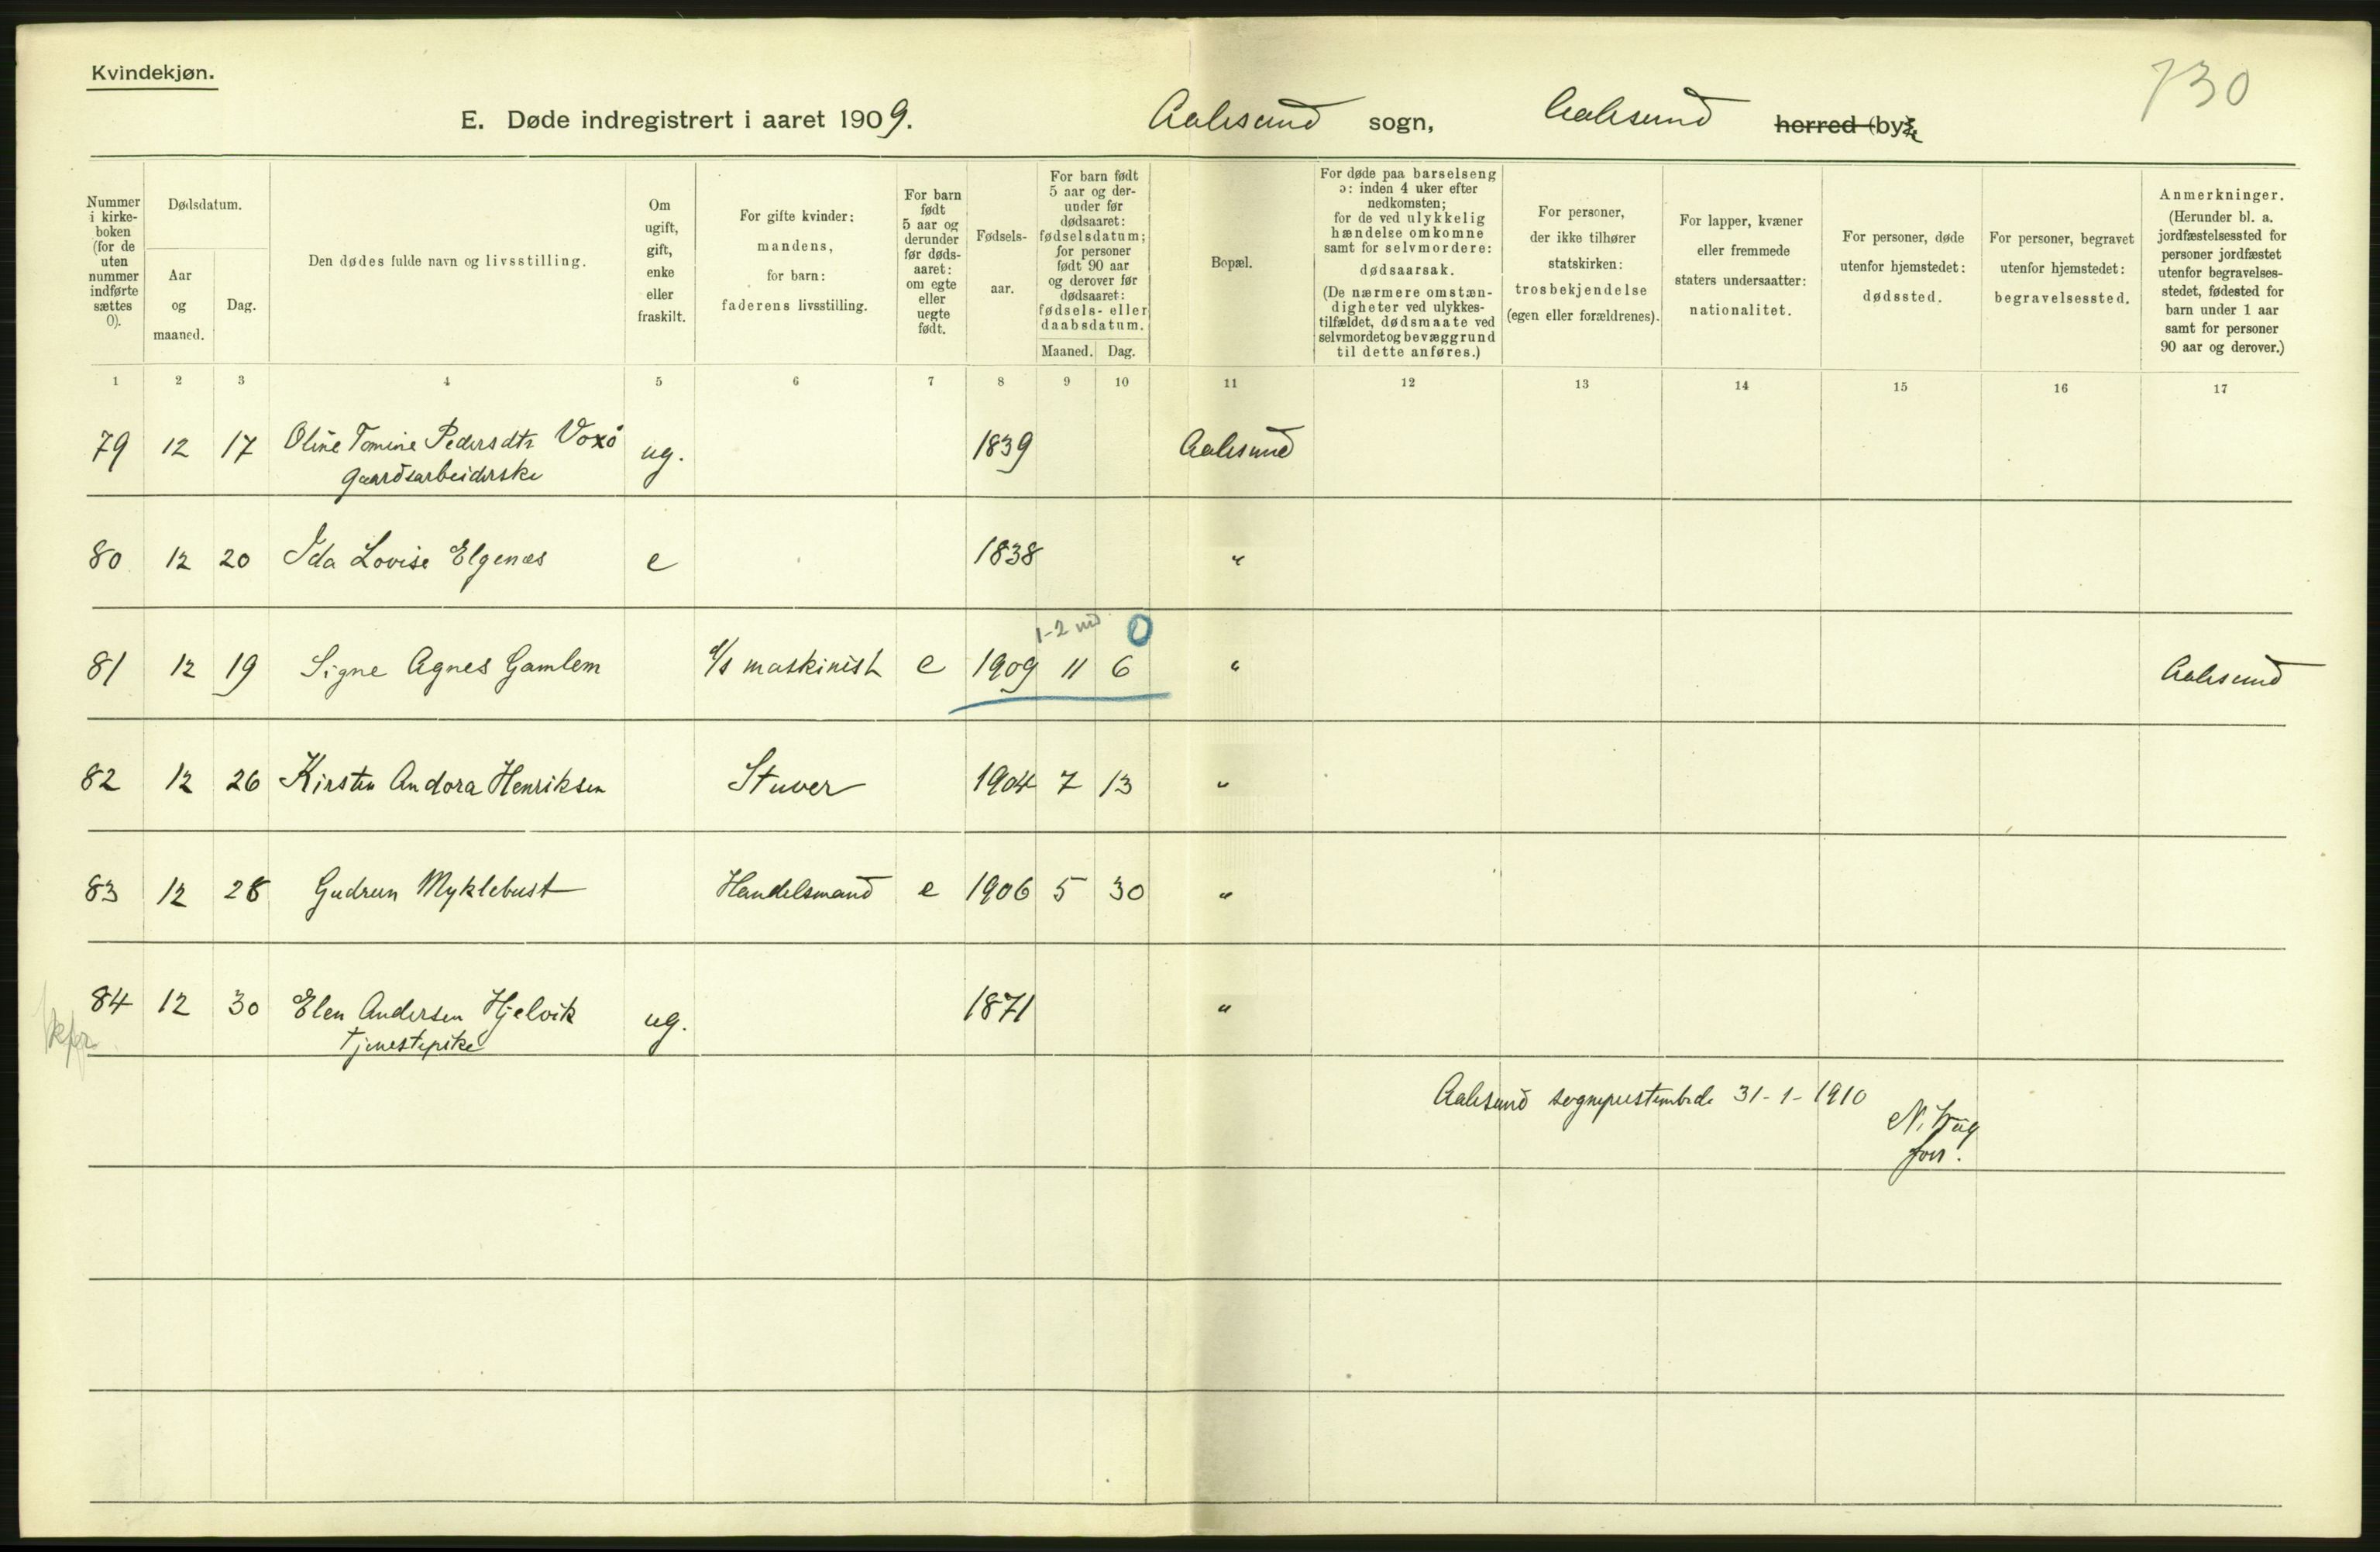 Kvindekjøn.
730
E. Døde indregistrert i aaret 1909. Aalesund sogn, Aalesund herred (by)
Nummer i kirke-boken (for de uten nummer indførte sættes 0).
Dødsdatum.
Aar og maaned.
Dag.
Den dødes fulde navn og livsstilling.
Om ugift, gift, enke eller fraskilt.
For gifte kvinder: mandens, for barn: faderens livsstilling.
For barn født 5 aar og derunder før døds-aaret: om egte eller uegte født.
Fødsels-aar.
For barn født 5 aar og der-under før dødsaaret: fødselsdatum; for personer født 90 aar og derover før dødsaaret: fødsels- eller daabsdatum.
Maaned. Dag.
Bopæl.
For døde paa barselseng ɔ: inden 4 uker efter nedkomsten; for de ved ulykkelig hændelse omkomne samt for selvmordere: dødsaarsak. (De nærmere omstæn-digheter ved ulykkes-tilfældet, dødsmaate ved selvmord og bevæggrund til dette anføres.)
For personer, der ikke tilhører statskirken: trosbekjendelse (egen eller forældrenes).
For lapper, kvæner eller fremmede staters undersaatter: nationalitet.
For personer, døde utenfor hjemstedet: dødssted.
For personer, begravet utenfor hjemstedet: begravelsessted.
Anmerkninger. (Herunder bl. a. jordfæstelsessted for personer jordfæstet utenfor begravelses-stedet, fødested for barn under 1 aar samt for personer 90 aar og derover.)
1 2 3 4 5 6 7 8 9 10 11 12 13 14 15 16 17
79 12 17 Oline Tomine Pedersdtr Voxö ug. 1839 Aalesund
gaardsarbeiderske
80 12 20 Ida Lovise Elgenæs e 1838 "
1-2 md 0
81 12 19 Signe Agnes Gamlem d/s maskinist e 1909 11 6 " Aalesund
82 12 26 Kirsten Andora Henriksen Stuver 1904 7 13 "
83 12 28 Gudrun Myklebust Handelsmand e 1906 5 30 "
84 12 30 Elen Andersen Hjelvik ug. 1871 "
tjenestepike
Aalesund sogneprestembede 31-1-1910